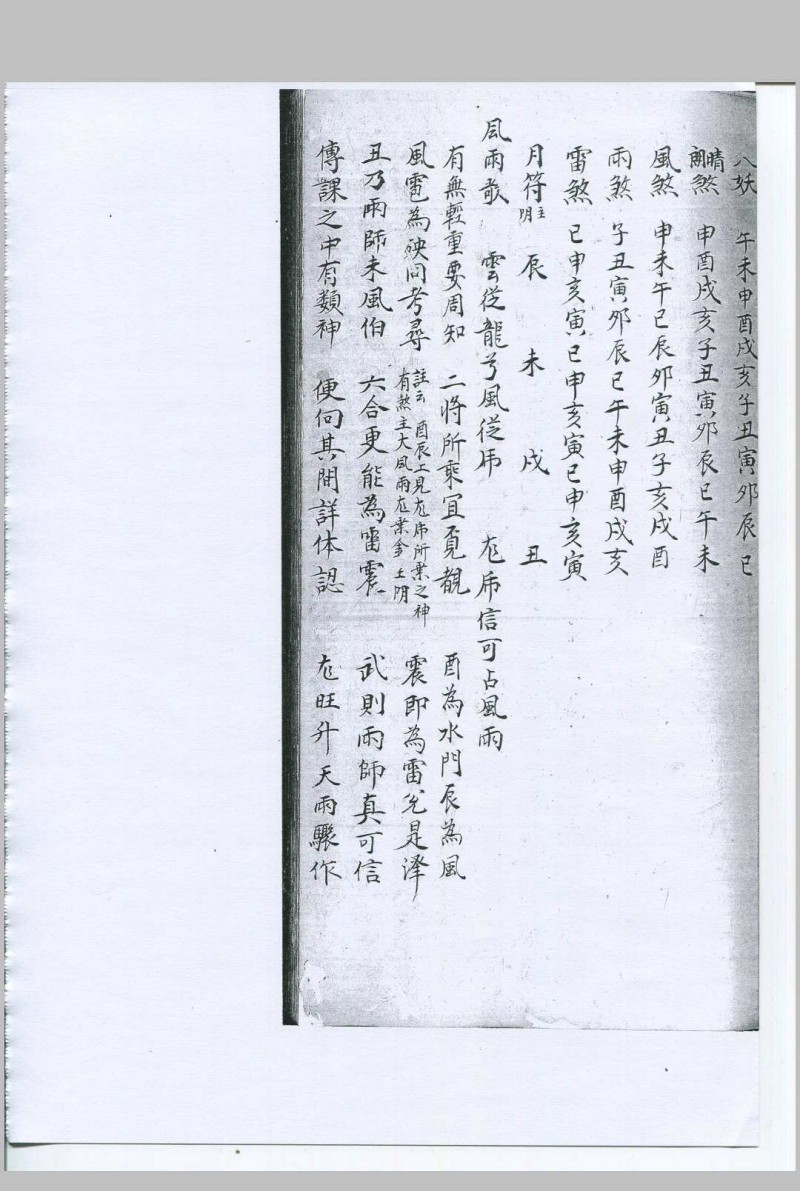 八妖 午未申酉戌亥子丑寅卯辰巳
晴朗煞 申酉戌亥子丑寅卯辰巳午未
風煞 申未午巳辰卯寅丑子亥戌酉
雨煞 子丑寅卯辰巳午未申酉戌亥
雷煞 巳申亥寅巳申亥寅巳申亥寅
月符主陰 辰 未 戌 丑
風雨歌 雲従龍兮風従虎 龙虎信可占風雨
有無輕重要周知 二将所乘宜覔覩 酉為水門辰為風
風雹為殃同考尋 註云 酉辰上見龙虎所乘之神
有煞主大風雨龙乘金土阴 震即為雷兊是泽
丑乃雨師未風伯 六合更能為雷震 武則雨師真可信
傳課之中有類神 便向其間詳体認 龙旺升天雨驟作